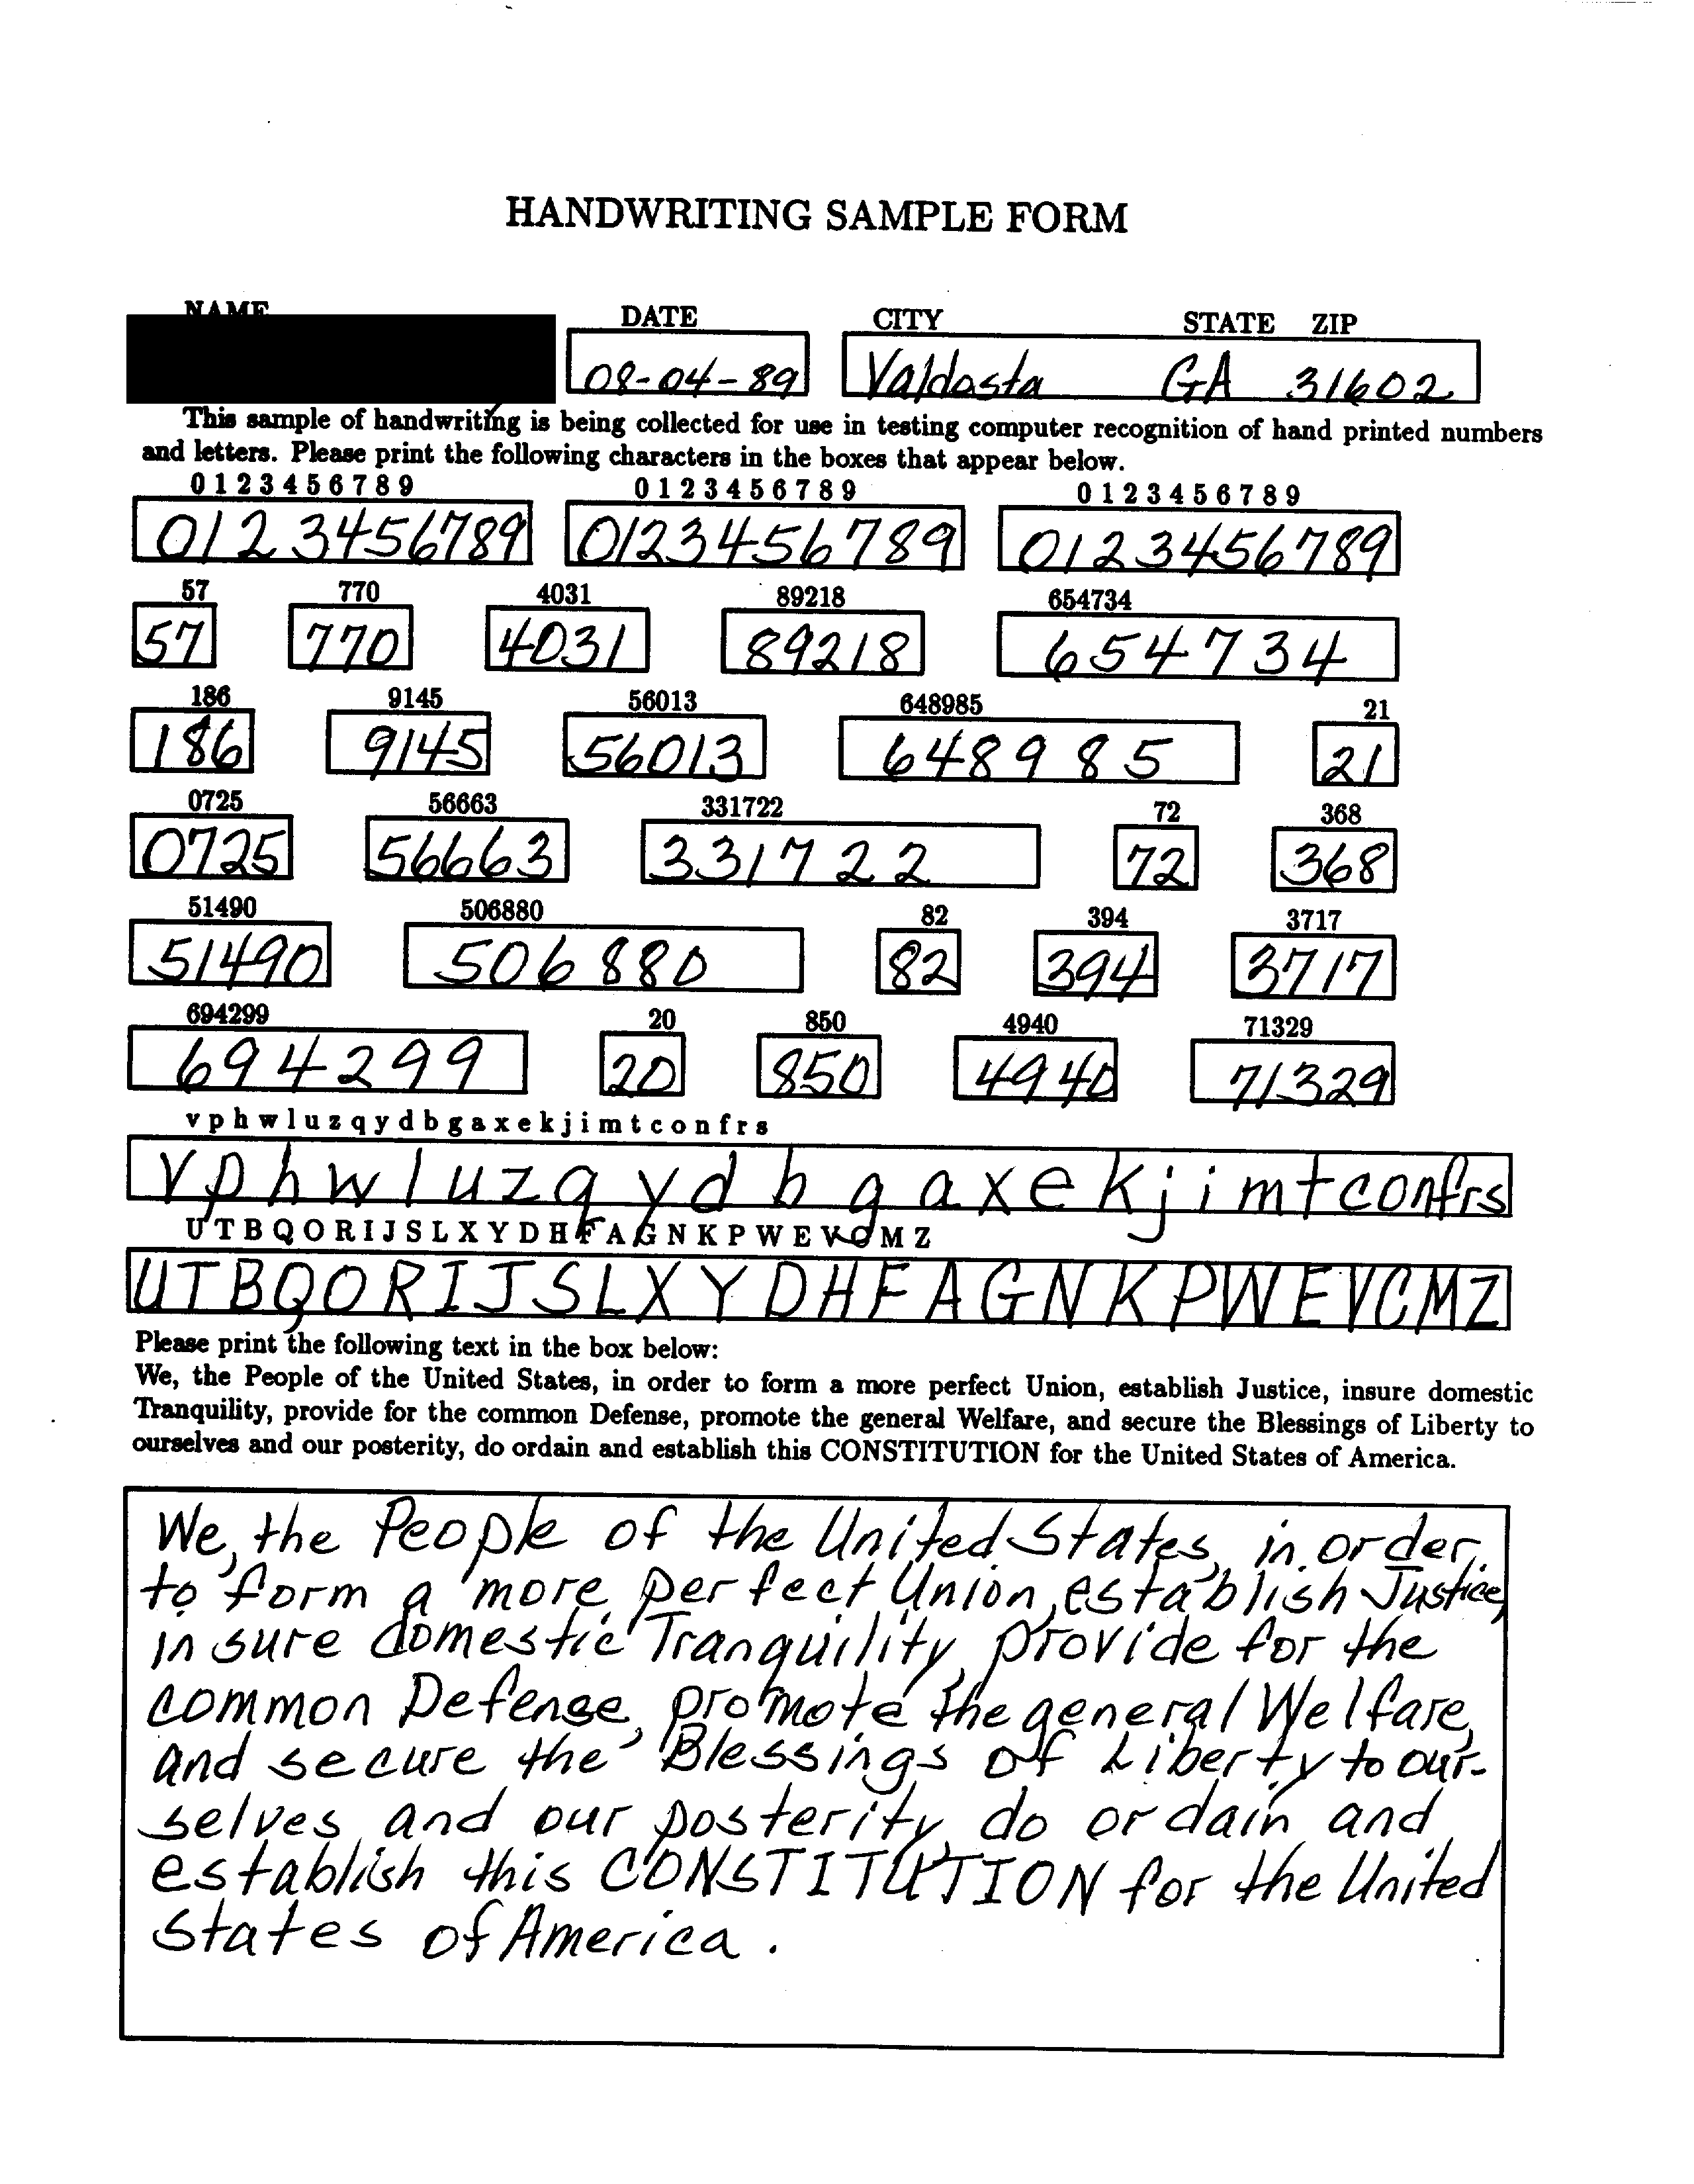 HANDWRITING SAMPLE FORM
NAME DATE CITY STATE ZIP
08-04-89 Valdosta GA 31602
This sample of handwriting is being collected for use in testing computer recognition of hand printed numbers
and letters. Please print the following characters in the boxes that appear below.
0 1 2 3 4 5 6 7 8 9 0 1 2 3 4 5 6 7 8 9 0 1 2 3 4 5 6 7 8 9
0123456789 0123456789 0123456789
57 770 4031 89218 654734
57 770 4031 89218 654734
186 9145 56013 648985 21
186 9145 56013 648985 21
0725 56663 331722 72 368
0725 56663 331722 72 368
51490 506880 82 394 3717
51490 506880 82 394 3717
694299 20 850 4940 71329
694299 20 850 4940 71329
v p h w l u z q y d b g a x e k j i m t c o n f r s
v p h w l u z q y d b g a x e k j i m t c o n f r s
U T B Q O R I J S L X Y D H F A G N K P W E V C M Z
U T B Q O R I J S L X Y D H F A G N K P W E V C M Z
Please print the following text in the box below:
We, the People of the United States, in order to form a more perfect Union, establish Justice, insure domestic
Tranquility, provide for the common Defense, promote the general Welfare, and secure the Blessings of Liberty to
ourselves and our posterity, do ordain and establish this CONSTITUTION for the United States of America.
We, the People of the United States, in order
to form a more perfect Union, establish Justice,
insure domestic Tranquility, provide for the
common Defense, promote the general Welfare,
and secure the Blessings of Liberty to our-
selves and our posterity, do ordain and
establish this CONSTITUTION for the United
States of America.